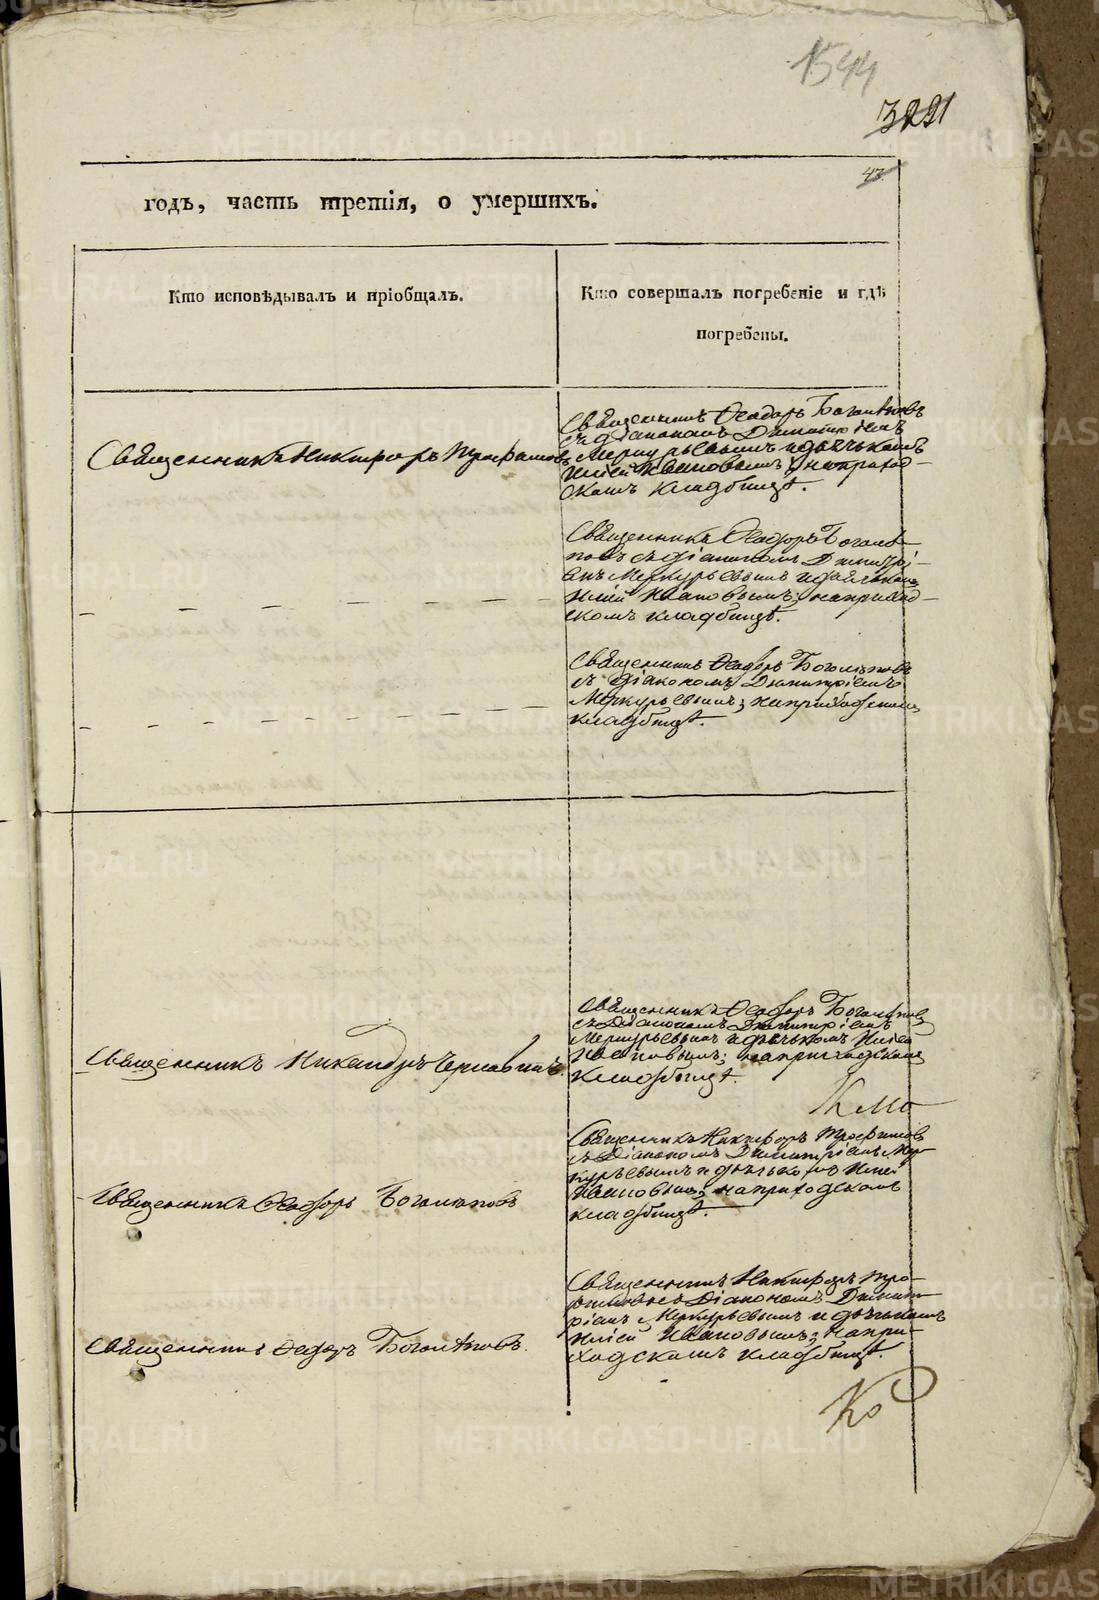 1544
3221
47
годъ, часть третія, о умершихъ.
Кто исповѣдывалъ и пріобщалъ.
Кто совершалъ погребеніе и гдѣ
погребены.
Священникъ Никифоръ Трофимовъ
Священникъ Ѳеодоръ Боголѣповъ
съ діакономъ Димитріемъ
Меркурьевымъ и дьячькомъ
Иліей Ивановымъ; на приход-
скомъ кладбищѣ.
Священникъ Ѳеодоръ Боголѣ-
повъ съ діакономъ Димитрі-
емъ Меркурьевымъ и дьячькомъ
Иліей Ивановымъ; на приход-
скомъ кладбищѣ.
Священникъ Ѳеодоръ Боголѣповъ
съ діакономъ Димитріемъ
Меркурьевымъ; на приходскомъ
кладбищѣ.
Священникъ Никандръ Чернавинъ.
Священникъ Ѳеодоръ Боголѣповъ
съ Діакономъ Димитріемъ
Меркурьевымъ и дьячькомъ Иліей
Ивановымъ; на приходскомъ
кладбищѣ.
Священникъ Ѳеодоръ Боголѣповъ
Священникъ Никифоръ Трофимовъ
съ Діакономъ Димитріемъ Мер-
курьевымъ и дьячькомъ Иліей
Ивановымъ; на приходскомъ
кладбищѣ.
Священникъ Ѳеодоръ Боголѣповъ.
Священникъ Никифоръ Тро-
фимовъ съ Діакономъ Димит-
ріемъ Меркурьевымъ и дьячькомъ
Иліей Ивановымъ; на при-
ходскомъ кладбищѣ.
METRIKI.GASO-URAL.RU